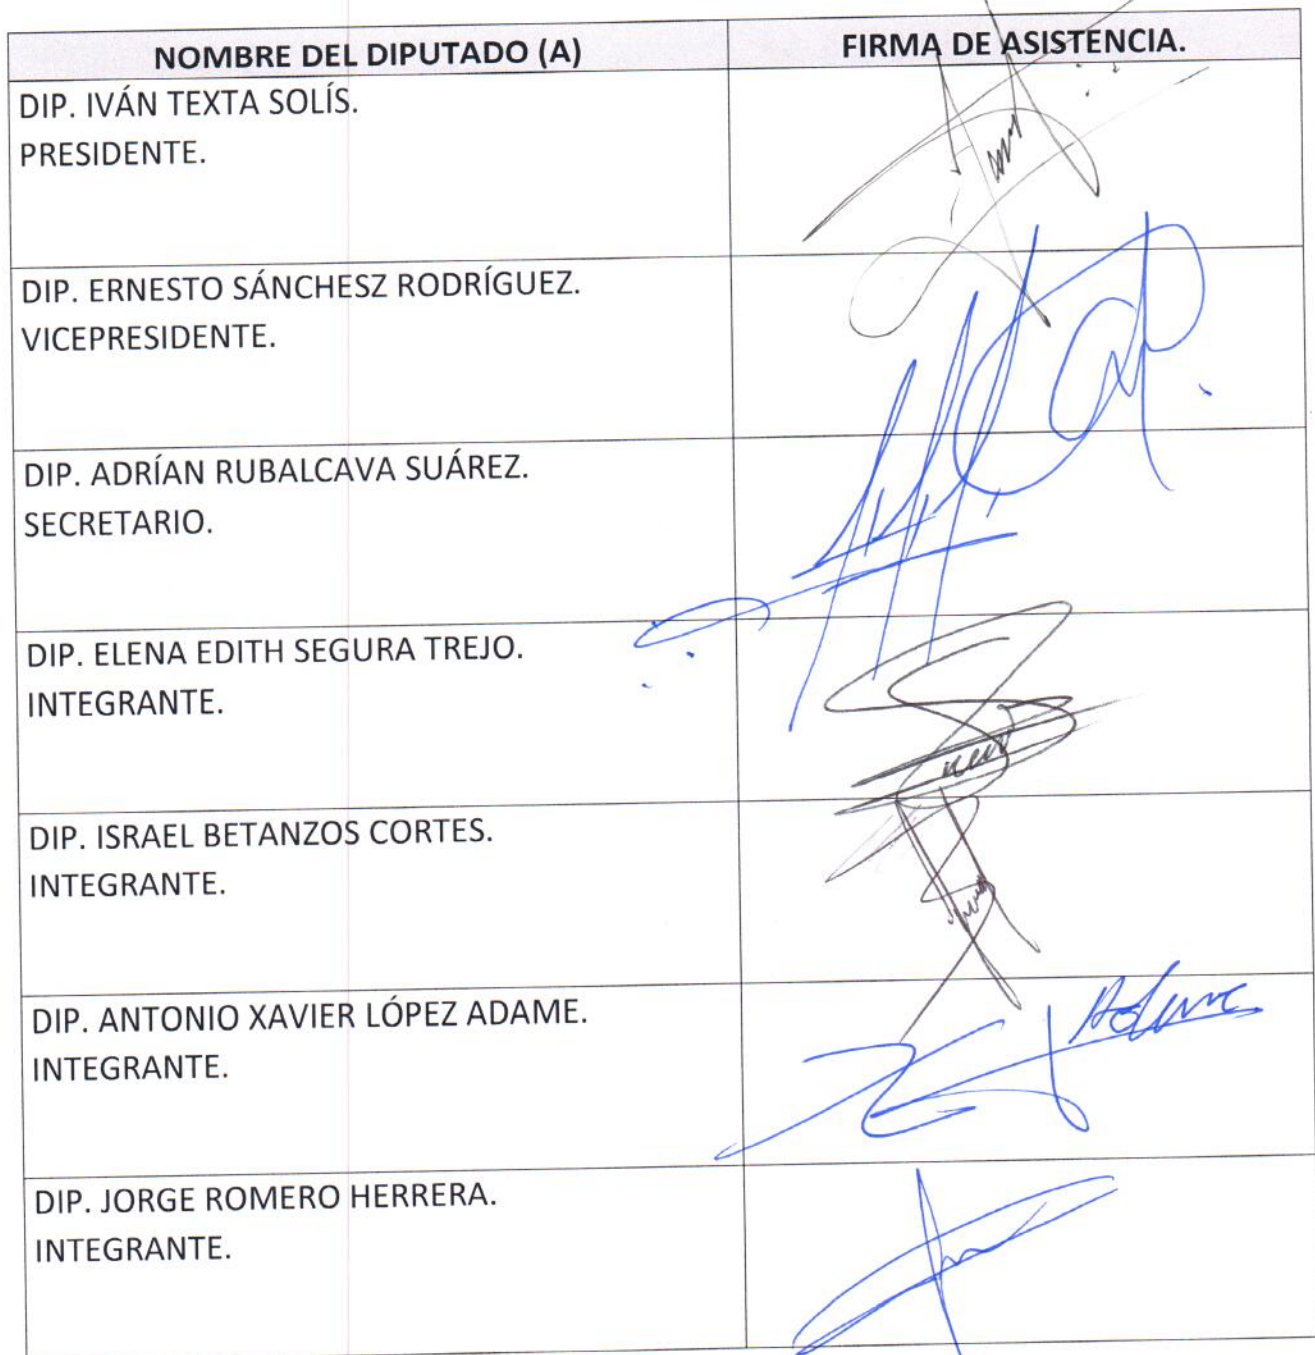 NOMBRE DEL DIPUTADO (A) FIRMA DE ASISTENCIA.
DIP. IVÁN TEXTA SOLÍS.
PRESIDENTE.
DIP. ERNESTO SÁNCHESZ RODRÍGUEZ.
VICEPRESIDENTE.
DIP. ADRÍAN RUBALCAVA SUÁREZ.
SECRETARIO.
DIP. ELENA EDITH SEGURA TREJO.
INTEGRANTE.
DIP. ISRAEL BETANZOS CORTES.
INTEGRANTE.
DIP. ANTONIO XAVIER LÓPEZ ADAME.
INTEGRANTE.
Adame
DIP. JORGE ROMERO HERRERA.
INTEGRANTE.